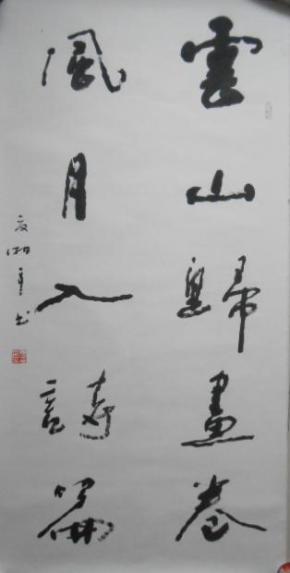 雲山歸畫卷
風月入詩篇